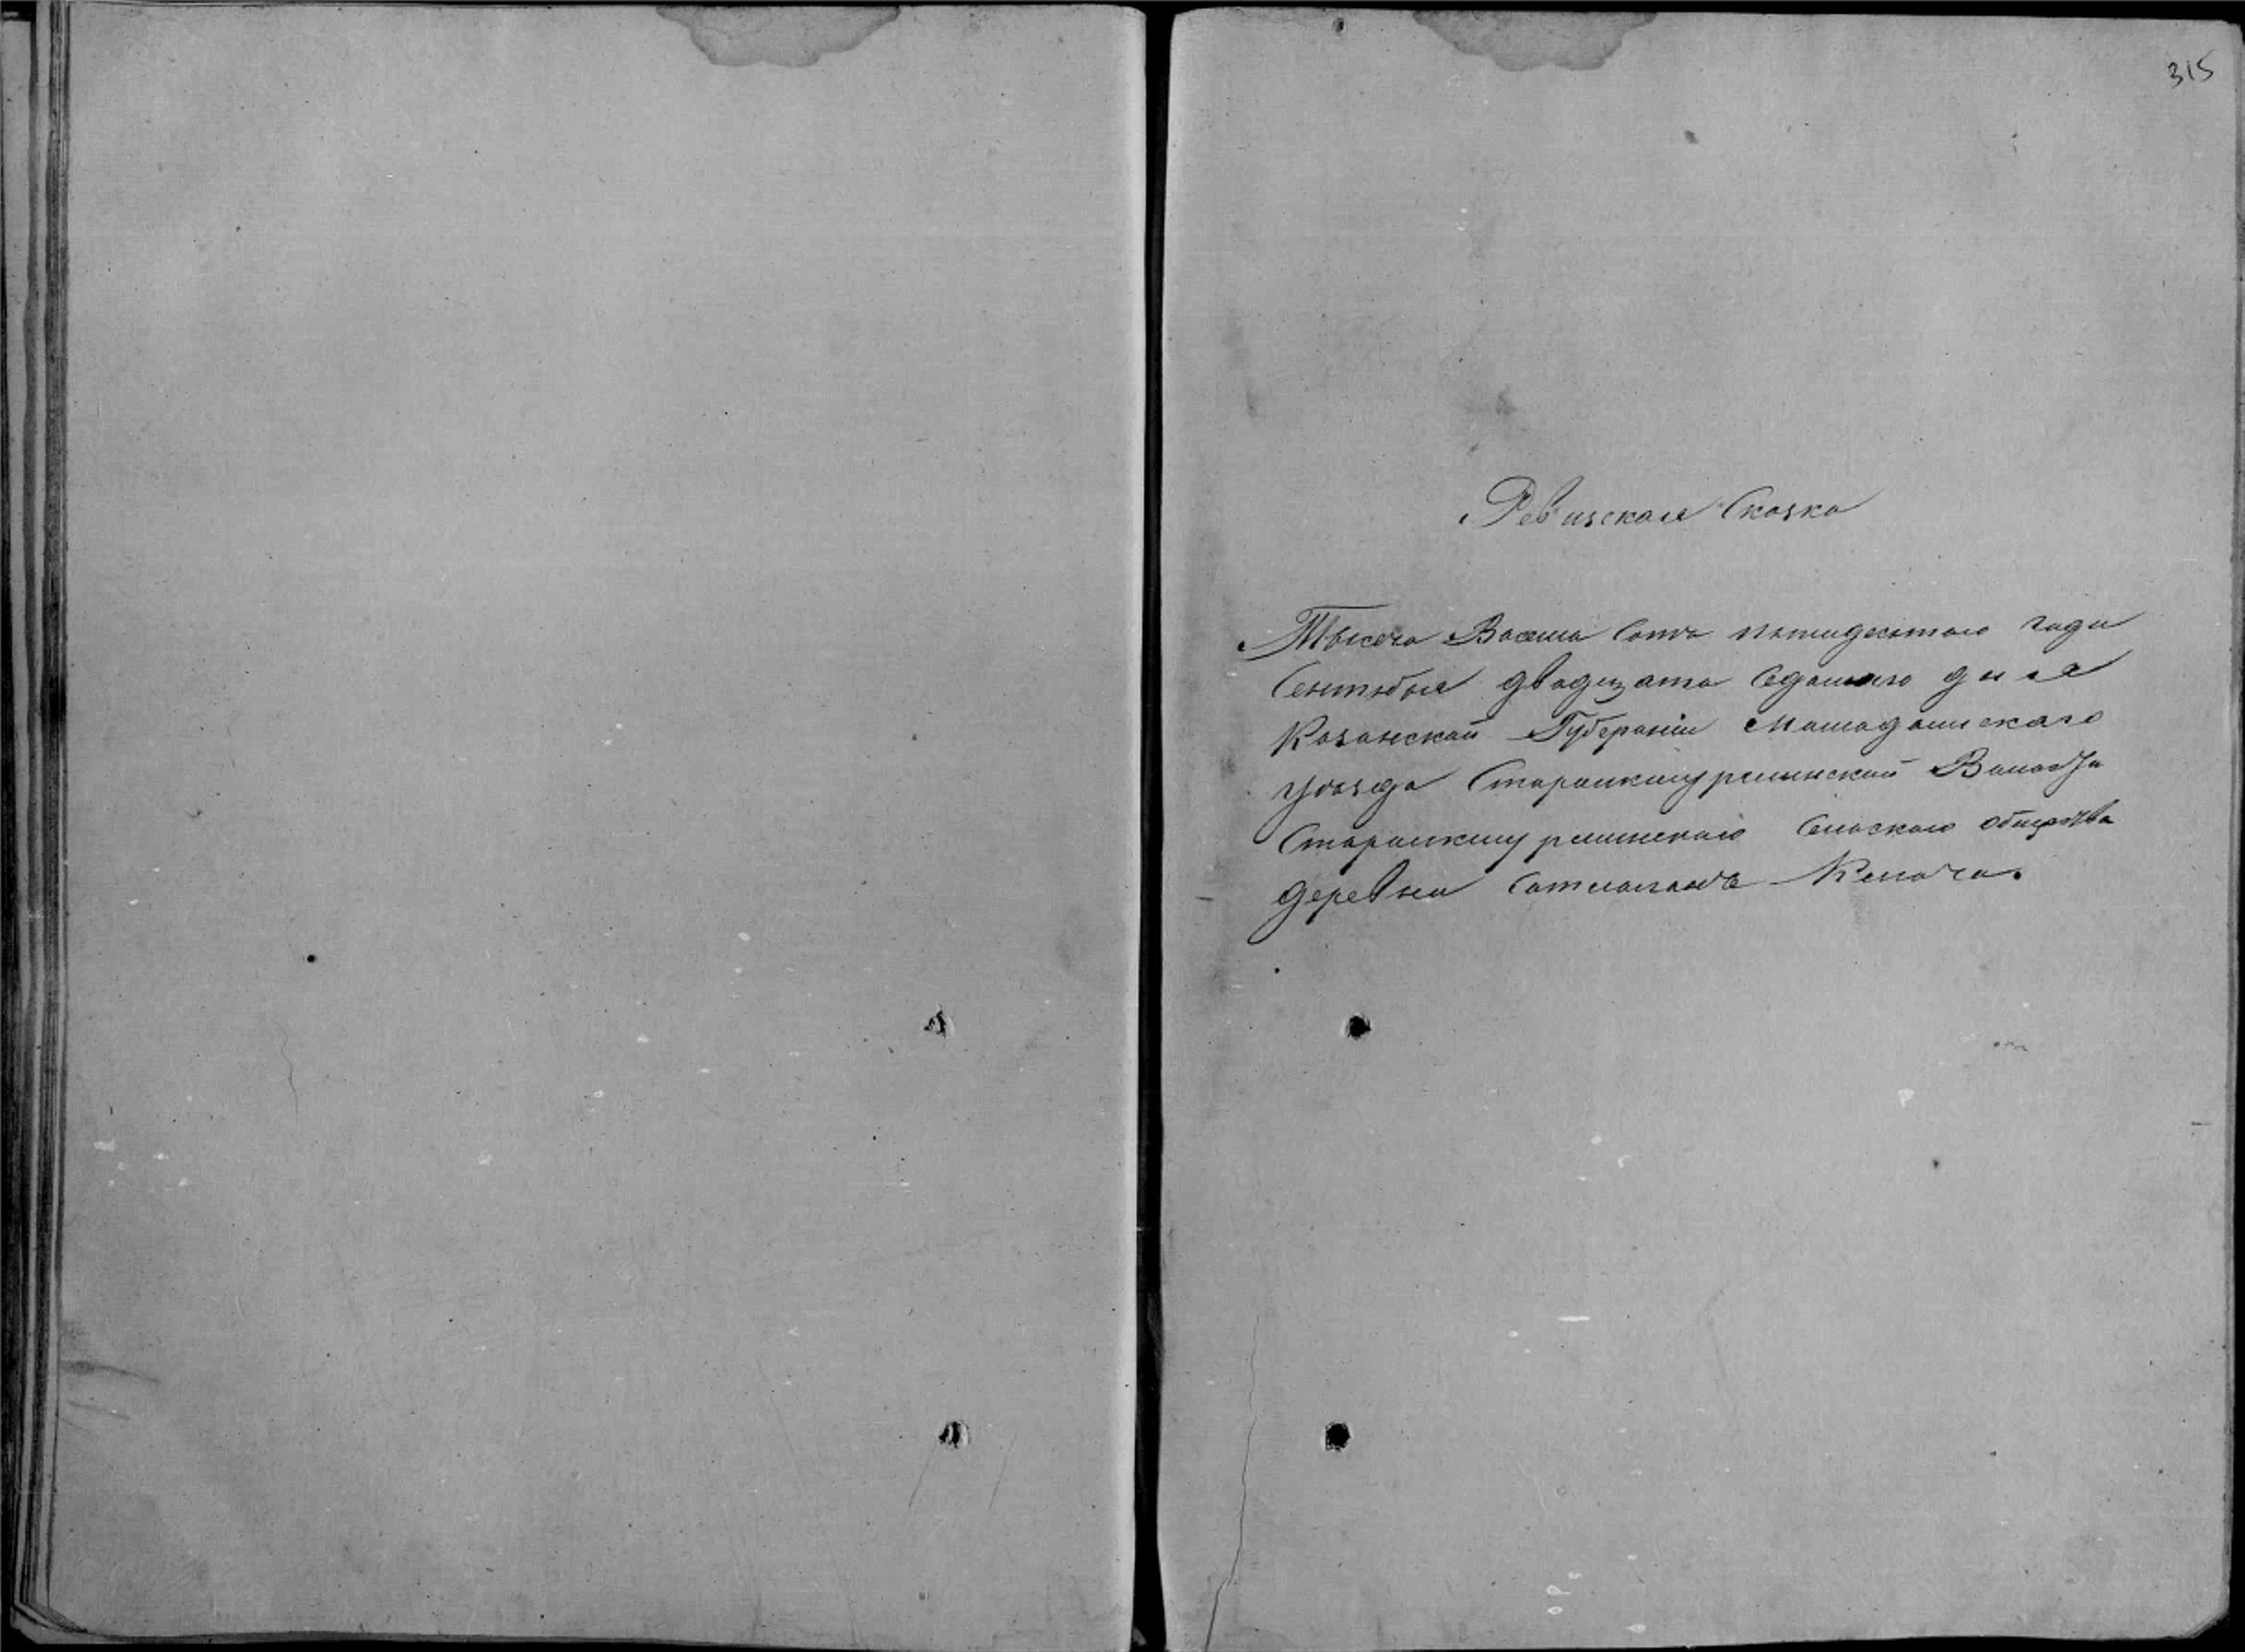 315
Ревизская Сказка
Тысеча Восемь Сотъ пятидесятаго года
Сентября двадцать Седмаго дня
Казанской Губерніи Мамадышскаго
уѣзда Старошкуршинской Волости
Старошкуршинскаго Сельскаго общества
деревни Кенеча